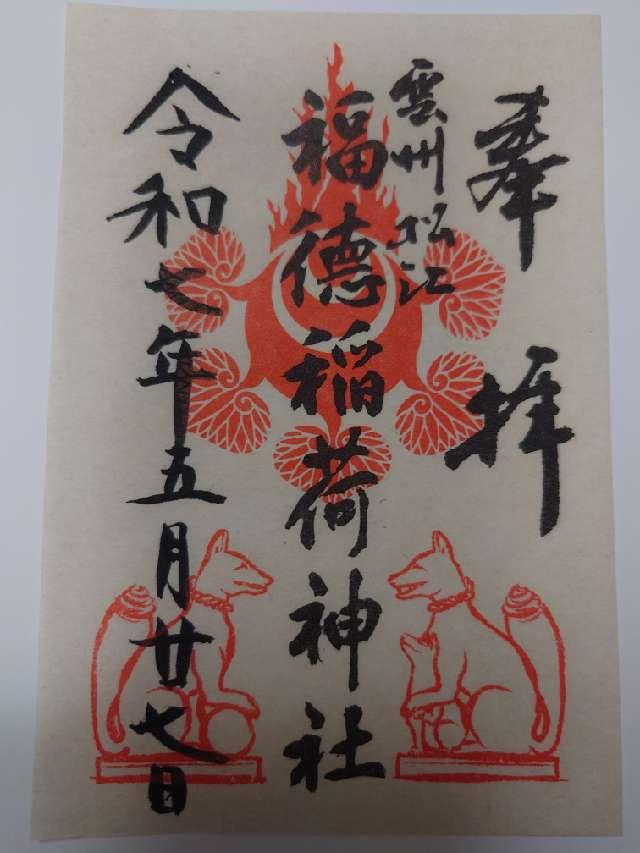 奉拝
雲州松江
福徳稲荷神社
令和七年五月廿七日